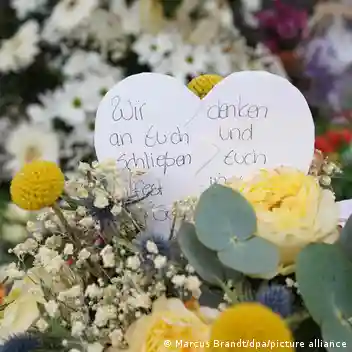 Wir denken
an Euch und
schließen Euch
fest
© Marcus Brandt/dpa/picture alliance